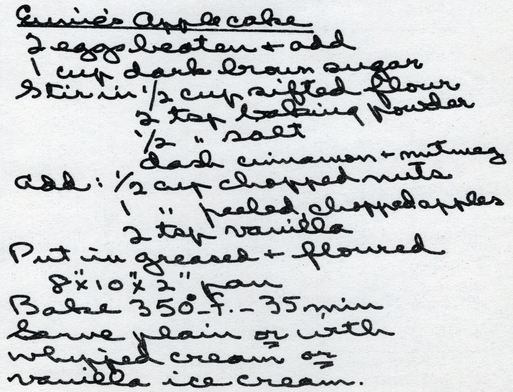 Ernie's Applecake
2 eggs beaten + add
1 cup dark brown sugar
Stir in 1/2 cup sifted flour
2 tsp baking powder
1/2 " salt
dash cinnamon + nutmeg
add: 1/2 cup chopped nuts
1 " peeled, chopped apples
2 tsp vanilla
Put in greased + floured
8"x10"x2" pan
Bake 350° f. - 35 min
Serve plain or with
whipped cream or
vanilla ice cream.